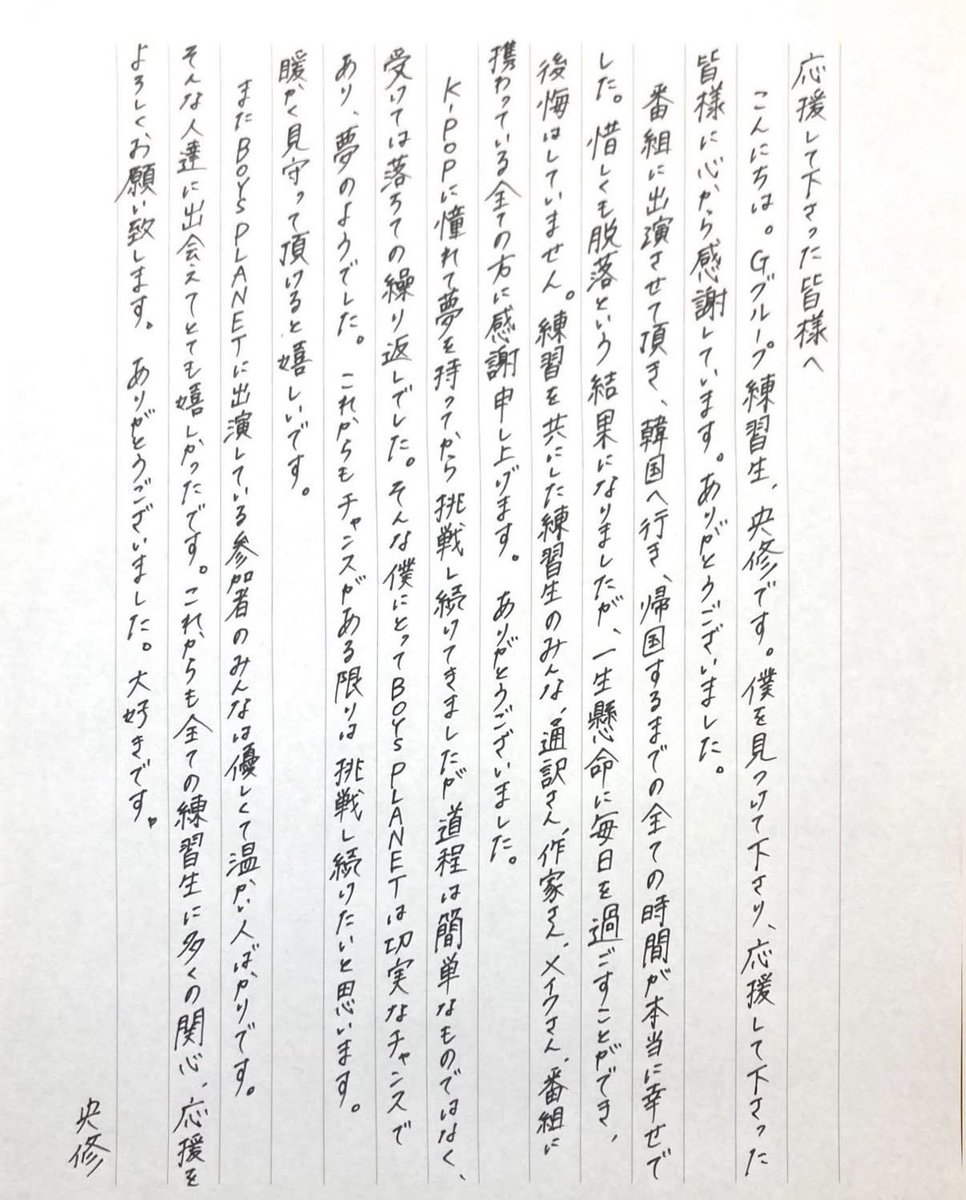 応援して下さった皆様へ
こんにちは。Gグループ練習生、央修です。僕を見つけて下さり、応援して下さった
皆様に心から感謝しています。ありがとうございました。
番組に出演させて頂き、韓国へ行き、帰国するまでの全ての時間が本当に幸せで
した。惜しくも脱落という結果になりましたが、一生懸命に毎日を過ごすことができ、
後悔はしていません。練習を共にした練習生のみんな、通訳さん、作家さん、メイクさん、番組に
携わっている全ての方に感謝申し上げます。 ありがとうございました。
K-POPに憧れて夢を持ってから挑戦し続けてきましたが道程は簡単なものではなく、
受けては落ちての繰り返しでした。そんな僕にとってBOYS PLANETは切実なチャンスで
あり、夢のようでした。これからもチャンスがある限りは挑戦し続けたいと思います。
暖かく見守って頂けると嬉しいです。
またBOYS PLANETに出演している参加者のみんなは優しくて温かい人ばかりです。
そんな人達に出会えてとても嬉しかったです。これからも全ての練習生に多くの関心、応援を
よろしくお願い致します。 ありがとうございました。大好きです。
央修